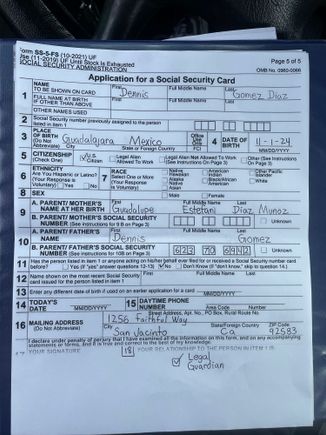 Form SS-5-FS (10-2021) UF
Use (11-2019) UF Until Stock Is Exhausted
SOCIAL SECURITY ADMINISTRATION
Page 5 of 5
OMB No. 0960-0066
Application for a Social Security Card
1 NAME TO BE SHOWN ON CARD First Dennis Full Middle Name Last Gomez Diaz
FULL NAME AT BIRTH IF OTHER THAN ABOVE First Full Middle Name Last
OTHER NAMES USED
2 Social Security number previously assigned to the person listed in item 1
3 PLACE OF BIRTH (Do Not Abbreviate) Guadalajara Mexico City State or Foreign Country FCI
4 DATE OF BIRTH 11-1-24 MM/DD/YYYY
5 CITIZENSHIP (Check One) U.S. Citizen Legal Alien Allowed To Work Legal Alien Not Allowed To Work (See Instructions On Page 3) Other (See Instructions On Page 3)
6 ETHNICITY Are You Hispanic or Latino? (Your Response is Voluntary) Yes No
7 RACE Select One or More (Your Response is Voluntary) Native Hawaiian Alaska Native Asian American Indian Black/African American Other Pacific Islander White
8 SEX Male Female
9 A. PARENT/ MOTHER'S NAME AT HER BIRTH First Guadalupe Full Middle Name Estefani Last Diaz Munoz
B. PARENT/ MOTHER'S SOCIAL SECURITY NUMBER (See instructions for 9 B on Page 3) Unknown
10 A. PARENT/ FATHER'S NAME First Dennis Full Middle Name Last Gomez
B. PARENT/ FATHER'S SOCIAL SECURITY NUMBER (See instructions for 10B on Page 3) Unknown
11 Has the person listed in item 1 or anyone acting on his/her behalf ever filed for or received a Social Security number card before?
Yes (If "yes" answer questions 12-13) No Don't Know (If "don't know," skip to question 14.)
12 Name shown on the most recent Social Security card issued for the person listed in item 1 First Full Middle Name Last
13 Enter any different date of birth if used on an earlier application for a card MM/DD/YYYY
14 TODAY'S DATE MM/DD/YYYY
15 DAYTIME PHONE NUMBER Area Code Number
16 MAILING ADDRESS (Do Not Abbreviate) 1256 Faithful Way
Street Address, Apt. No., PO Box, Rural Route No.
City San Jacinto State/Foreign Country Ca ZIP Code 92583
I declare under penalty of perjury that I have examined all the information on this form, and on any accompanying statements or forms, and it is true and correct to the best of my knowledge.
YOUR SIGNATURE 18 YOUR RELATIONSHIP TO THE PERSON IN ITEM 1 IS:
Legal
Guardian